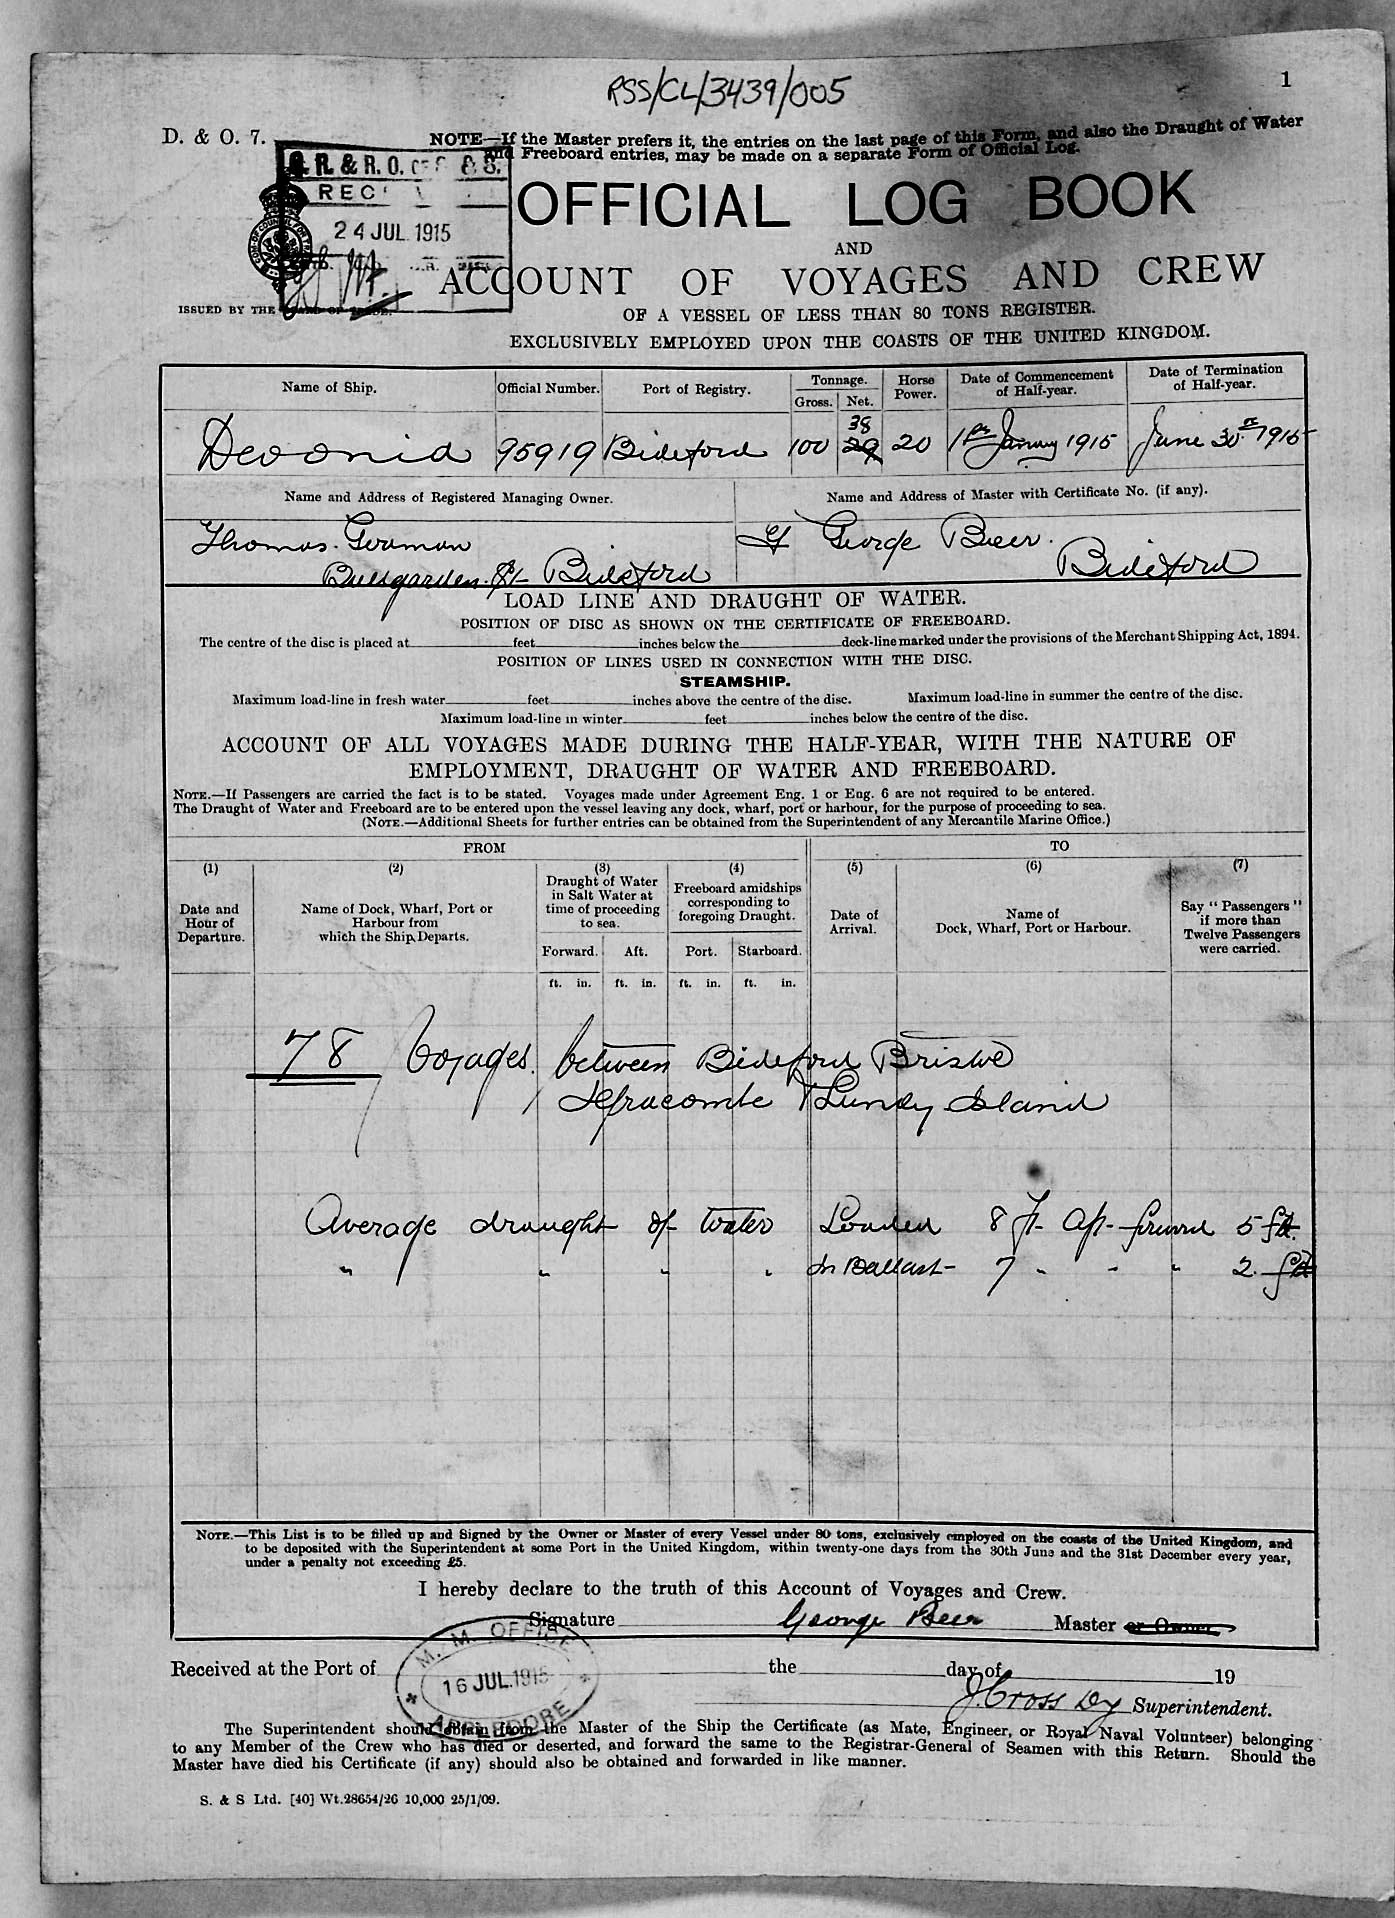 RSS/CL/3439/005
1
D. & O. 7.
NOTE—If the Master prefers it, the entries on the last page of this Form, and also the Draught of Water
and Freeboard entries, may be made on a separate Form of Official Log.
R. & R. O.
REC
24 JUL 1915
OFFICIAL LOG BOOK
AND
ACCOUNT OF VOYAGES AND CREW
ISSUED BY THE BOARD OF TRADE.
OF A VESSEL OF LESS THAN 80 TONS REGISTER.
EXCLUSIVELY EMPLOYED UPON THE COASTS OF THE UNITED KINGDOM.
Name of Ship. Official Number. Port of Registry. Tonnage. Gross. Net. Horse Power. Date of Commencement of Half-year. Date of Termination of Half-year.
38
Devonia 95919 Bideford 100 29 20 1st January 1915 June 30th 1915
Name and Address of Registered Managing Owner. Name and Address of Master with Certificate No. (if any).
Thomas Gorman George Beer.
Bullgarden St Bideford Bideford
LOAD LINE AND DRAUGHT OF WATER.
POSITION OF DISC AS SHOWN ON THE CERTIFICATE OF FREEBOARD.
The centre of the disc is placed at feet inches below the deck-line marked under the provisions of the Merchant Shipping Act, 1894.
POSITION OF LINES USED IN CONNECTION WITH THE DISC.
STEAMSHIP.
Maximum load-line in fresh water feet inches above the centre of the disc. Maximum load-line in summer the centre of the disc.
Maximum load-line in winter feet inches below the centre of the disc.
ACCOUNT OF ALL VOYAGES MADE DURING THE HALF-YEAR, WITH THE NATURE OF
EMPLOYMENT, DRAUGHT OF WATER AND FREEBOARD.
NOTE.—If Passengers are carried the fact is to be stated. Voyages made under Agreement Eng. 1 or Eng. 6 are not required to be entered.
The Draught of Water and Freeboard are to be entered upon the vessel leaving any dock, wharf, port or harbour, for the purpose of proceeding to sea.
(NOTE.—Additional Sheets for further entries can be obtained from the Superintendent of any Mercantile Marine Office.)
FROM TO
(1) (2) (3) (4) (5) (6) (7)
Date and Hour of Departure.
Name of Dock, Wharf, Port or Harbour from which the Ship Departs.
Draught of Water in Salt Water at time of proceeding to sea.
Freeboard amidships corresponding to foregoing Draught.
Date of Arrival.
Name of Dock, Wharf, Port or Harbour.
Say "Passengers" if more than Twelve Passengers were carried.
Forward. Aft. Port. Starboard.
ft. in. ft. in. ft. in. ft. in.
78 Voyages between Bideford Bristol
Ilfracombe & Lundy Island
Average draught of water Loaded 8 ft aft forward 5 ft.
" " " " In Ballast 7 " " " 2 ft
NOTE.—This List is to be filled up and Signed by the Owner or Master of every Vessel under 80 tons, exclusively employed on the coasts of the United Kingdom, and
to be deposited with the Superintendent at some Port in the United Kingdom, within twenty-one days from the 30th June and the 31st December every year,
under a penalty not exceeding £5.
I hereby declare to the truth of this Account of Voyages and Crew.
Signature George Beer Master or Owner.
M. M. OFFICE
16 JUL.1915
APPLEDORE
Received at the Port of the day of 19
J. Cross Dy Superintendent.
The Superintendent should obtain from the Master of the Ship the Certificate (as Mate, Engineer, or Royal Naval Volunteer) belonging
to any Member of the Crew who has died or deserted, and forward the same to the Registrar-General of Seamen with this Return. Should the
Master have died his Certificate (if any) should also be obtained and forwarded in like manner.
S. & S Ltd. [40] Wt.28654/26 10,000 25/1/09.